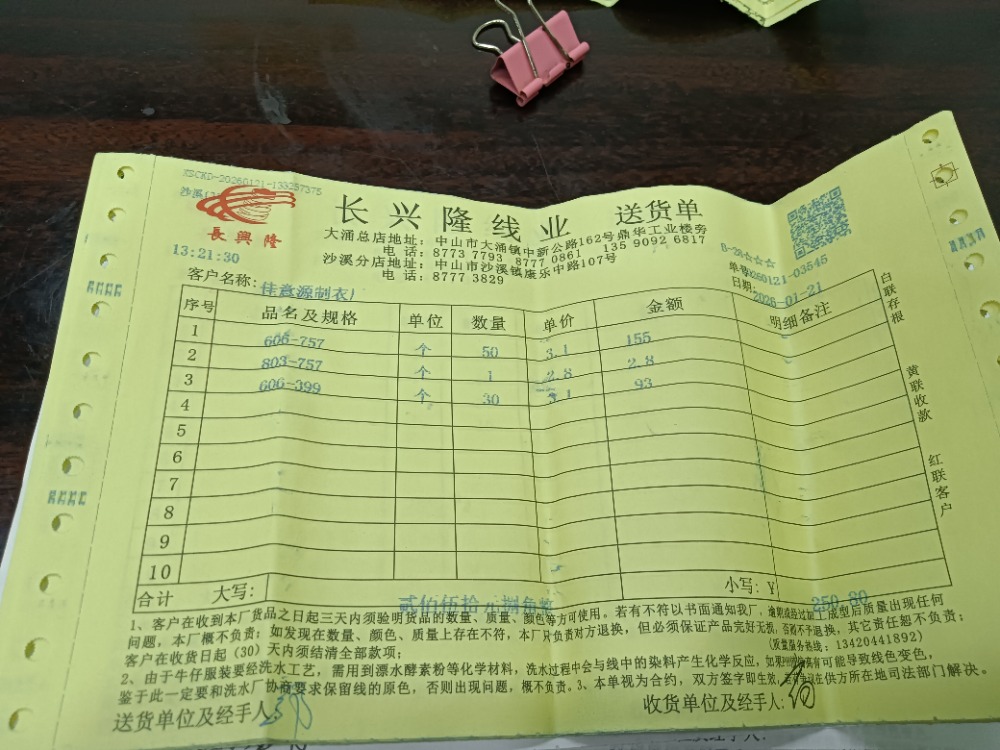 XSCKD-20260121-133257375
長興隆
长兴隆线业 送货单
大涌总店地址：中山市大涌镇中新公路162号鼎华工业楼旁
电话：8773 7793 8777 0861 135 9092 6817
沙溪分店地址：中山市沙溪镇康乐中路107号
电话：8777 3829
13:21:30
B-26☆☆☆
单号XS60121-03545
日期：2026-01-21
客户名称：佳意源制衣厂
序号 品名及规格 单位 数量 单价 金额 明细备注
1 606-757 个 50 3.1 155
2 803-757 个 1 2.8 2.8
3 606-399 个 30 3.1 93
4
5
6
7
8
9
10
合计 大写：贰佰伍拾元捌角整 小写：￥ 250.80
白联存根
黄联收款
红联客户
1、客户在收到本厂货品之日起三天内须验明货品的数量、质量、颜色等方可使用。若有不符以书面通知我厂，逾期或经过加工成型后质量出现任何
问题，本厂概不负责；如发现在数量、颜色、质量上存在不符，本厂只负责对方退换，但必须保证产品完好无损，否则不予退换，其它责任恕不负责；
客户在收货日起（30）天内须结清全部款项；
(质量服务热线：13420441892)
2、由于牛仔服装要经洗水工艺，需用到漂水酵素粉等化学材料，洗水过程中会与线中的染料产生化学反应，如果有可能导致线色变色，
鉴于此一定要和洗水厂协商要求保留线的原色，否则出现问题，概不负责。3、本单视为合约，双方签字即生效，在供方所在地司法部门解决。
送货单位及经手人：
收货单位及经手人：